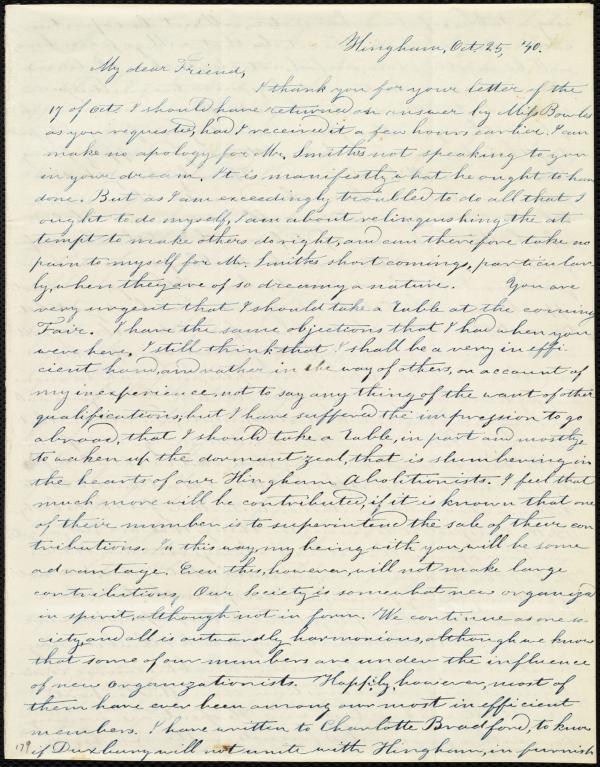 Hingham, Oct. 25, '40.
My dear Friend,
I thank you for your letter of the
17 of Oct. I should have returned an answer by Miss Bowles
as you requested, had I received it a few hours earlier. I can
make no apology for Mr. Smith's not speaking to you
in your dream. It is manifestly what he ought to have
done. But as I am exceedingly troubled to do all that I
ought to do myself, I am about relinquishing the at-
tempt to make others do right, and can therefore take no
pain to myself for Mr. Smith's short comings, particular-
ly, when they are of so dreamy a nature. You are
very urgent that I should take a table at the coming
Fair. I have the same objections that I had when you
were here. I still think that I shall be a very in effi-
cient hand, and rather in the way of others, on account of
my inexperience, not to say any thing of the want of other
qualifications, but I have suffered the impression to go
abroad, that I should take a table, in part and mostly
to waken up the dormant zeal, that is slumbering in
the hearts of our Hingham Abolitionists. I feel that
much more will be contributed, if it is known that one
of their number is to superintend the sale of their con
tributions. In this way, my being with you, will be some
advantage. Even this, however, will not make large
contributions. Our Society is somewhat new organized
in spirit, although not in form. We continue as one so
ciety, and all is outwardly harmonious, although we know
that some of our members are under the influence
of new organizationists. Happily, however, most of
them have ever been among our most in efficient
members. I have written to Charlotte Bradford, to know
if Duxbury will not unite with Hingham, in furnish
179